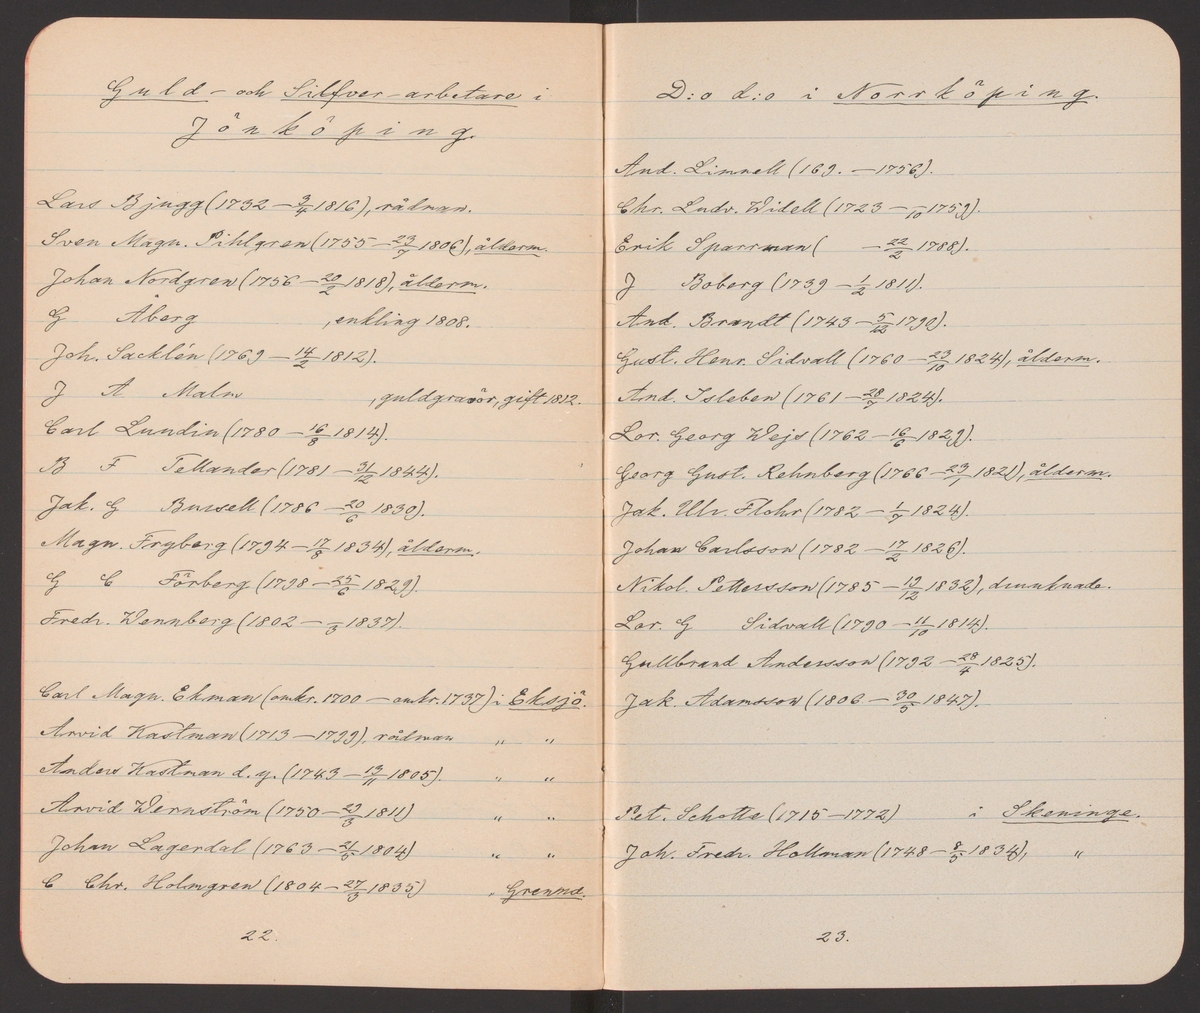 Guld- och Silfver-arbetare i
Jönköping.
Lars Bjugg (1732 — 3/4 1816), rådman.
Sven Magn. Pihlgren (1755 — 23/7 1806), ålderm.
Johan Nordgren (1756 — 20/2 1818), ålderm.
G Åberg , enkling 1808.
Joh. Sacklén (1769 — 14/2 1812).
J A Malm , guldgravör, gift 1812.
Carl Lundin (1780 — 16/8 1814).
B F Tellander (1781 — 31/12 1844).
Jak. G Bursell (1786 — 20/6 1830).
Magn. Fryberg (1794 — 17/8 1834), ålderm.
G C Förberg (1798 — 25/6 1829).
Fredr. Wennberg (1802 — /3 1837).
Carl Magn. Ekman (omkr. 1700 — omkr. 1737) i Eksjö.
Arvid Hastman (1713 — 1799), rådman " "
Anders Hastman d. y. (1743 — 13/11 1805). " "
Arvid Wernström (1750 — 29/3 1811) " "
Johan Lagerdal (1763 — 21/5 1804) " "
C Chr. Holmgren (1804 — 27/3 1835) " Grenna.
22.
D:o d:o i Norrköping.
And. Limnell (169. — 1756).
Chr. Ludv. Widell (1723 — /10 1759).
Erik Sparrman ( — 22/2 1788).
J Boberg (1739 — 1/2 1811).
And. Brandt (1743 — 5/12 1790).
Gust. Henr. Sidvall (1760 — 23/10 1824), ålderm.
And. Isleben (1761 — 28/7 1824).
Lor. Georg Wejs (1762 — 16/6 1829).
Georg Gust. Rehnberg (1766 — 23/1 1821), ålderm.
Jak. Ulr. Flohr (1782 — 1/7 1824).
Johan Carlsson (1782 — 17/2 1826).
Nikol. Pettersson (1785 — 19/12 1832), drunknade.
Lor. G Sidvall (1790 — 11/10 1814).
Gullbrand Andersson (1792 — 28/4 1825).
Jak. Adamsson (1806 — 30/5 1847).
Pet. Schotte (1715 — 1772) i Skeninge.
Joh. Fredr. Hollman (1748 — 8/5 1834), "
23.